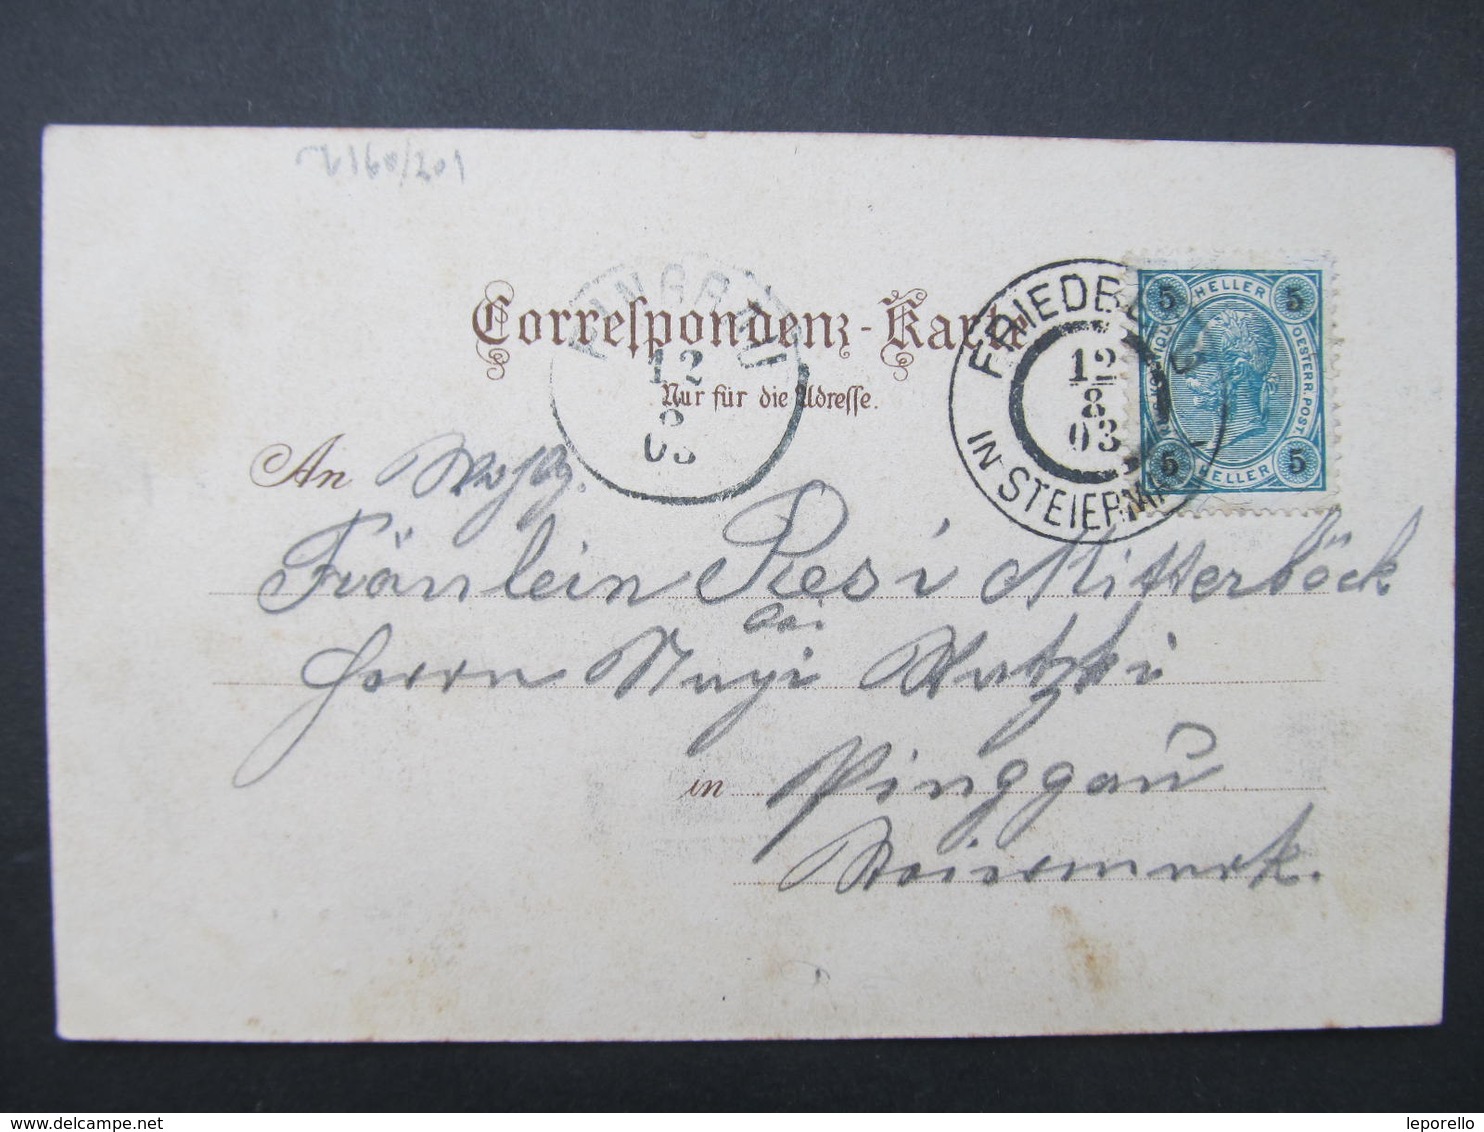 2160/201
Correspondenz-Karte
Nur für die Adresse.
PINGGAU
12
8
03
FRIEDBERG
12
8
03
IN STEIERMARK
5 HELLER 5
OESTERR. POST.
5 HELLER 5
An Wohlg.
Fräulein Resi Mitterböck
bei
Herrn
in Pinggau
Steiermark.
www.delcampe.net
leporello